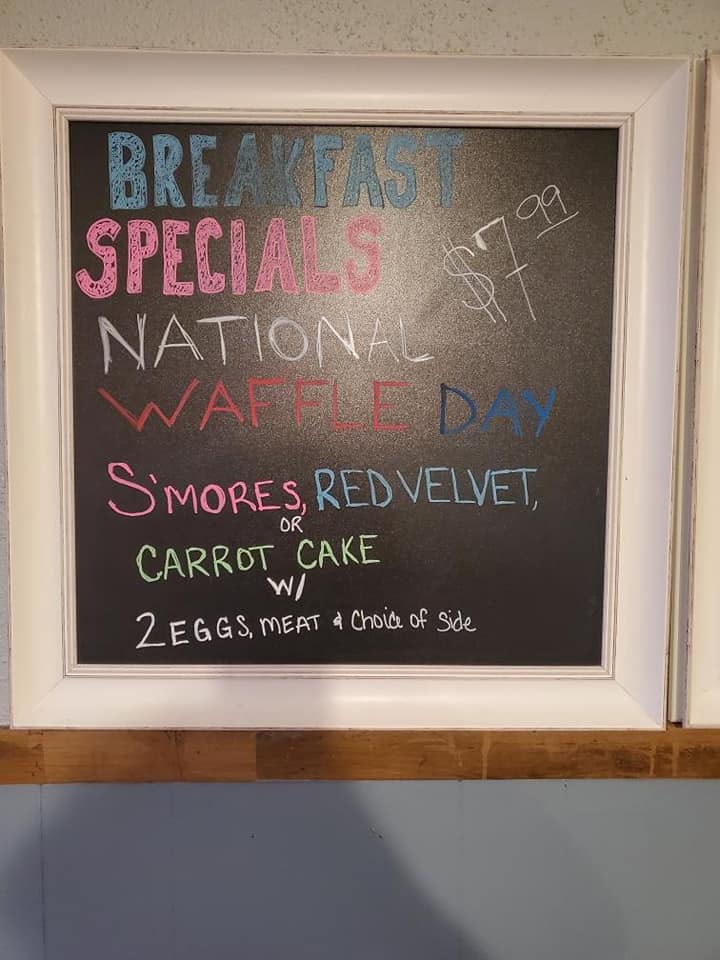 BREAKFAST
SPECIALS
$7.99
NATIONAL
WAFFLE DAY
S'MORES, RED VELVET,
OR
CARROT CAKE
W/
2 EGGS, MEAT & Choice of Side